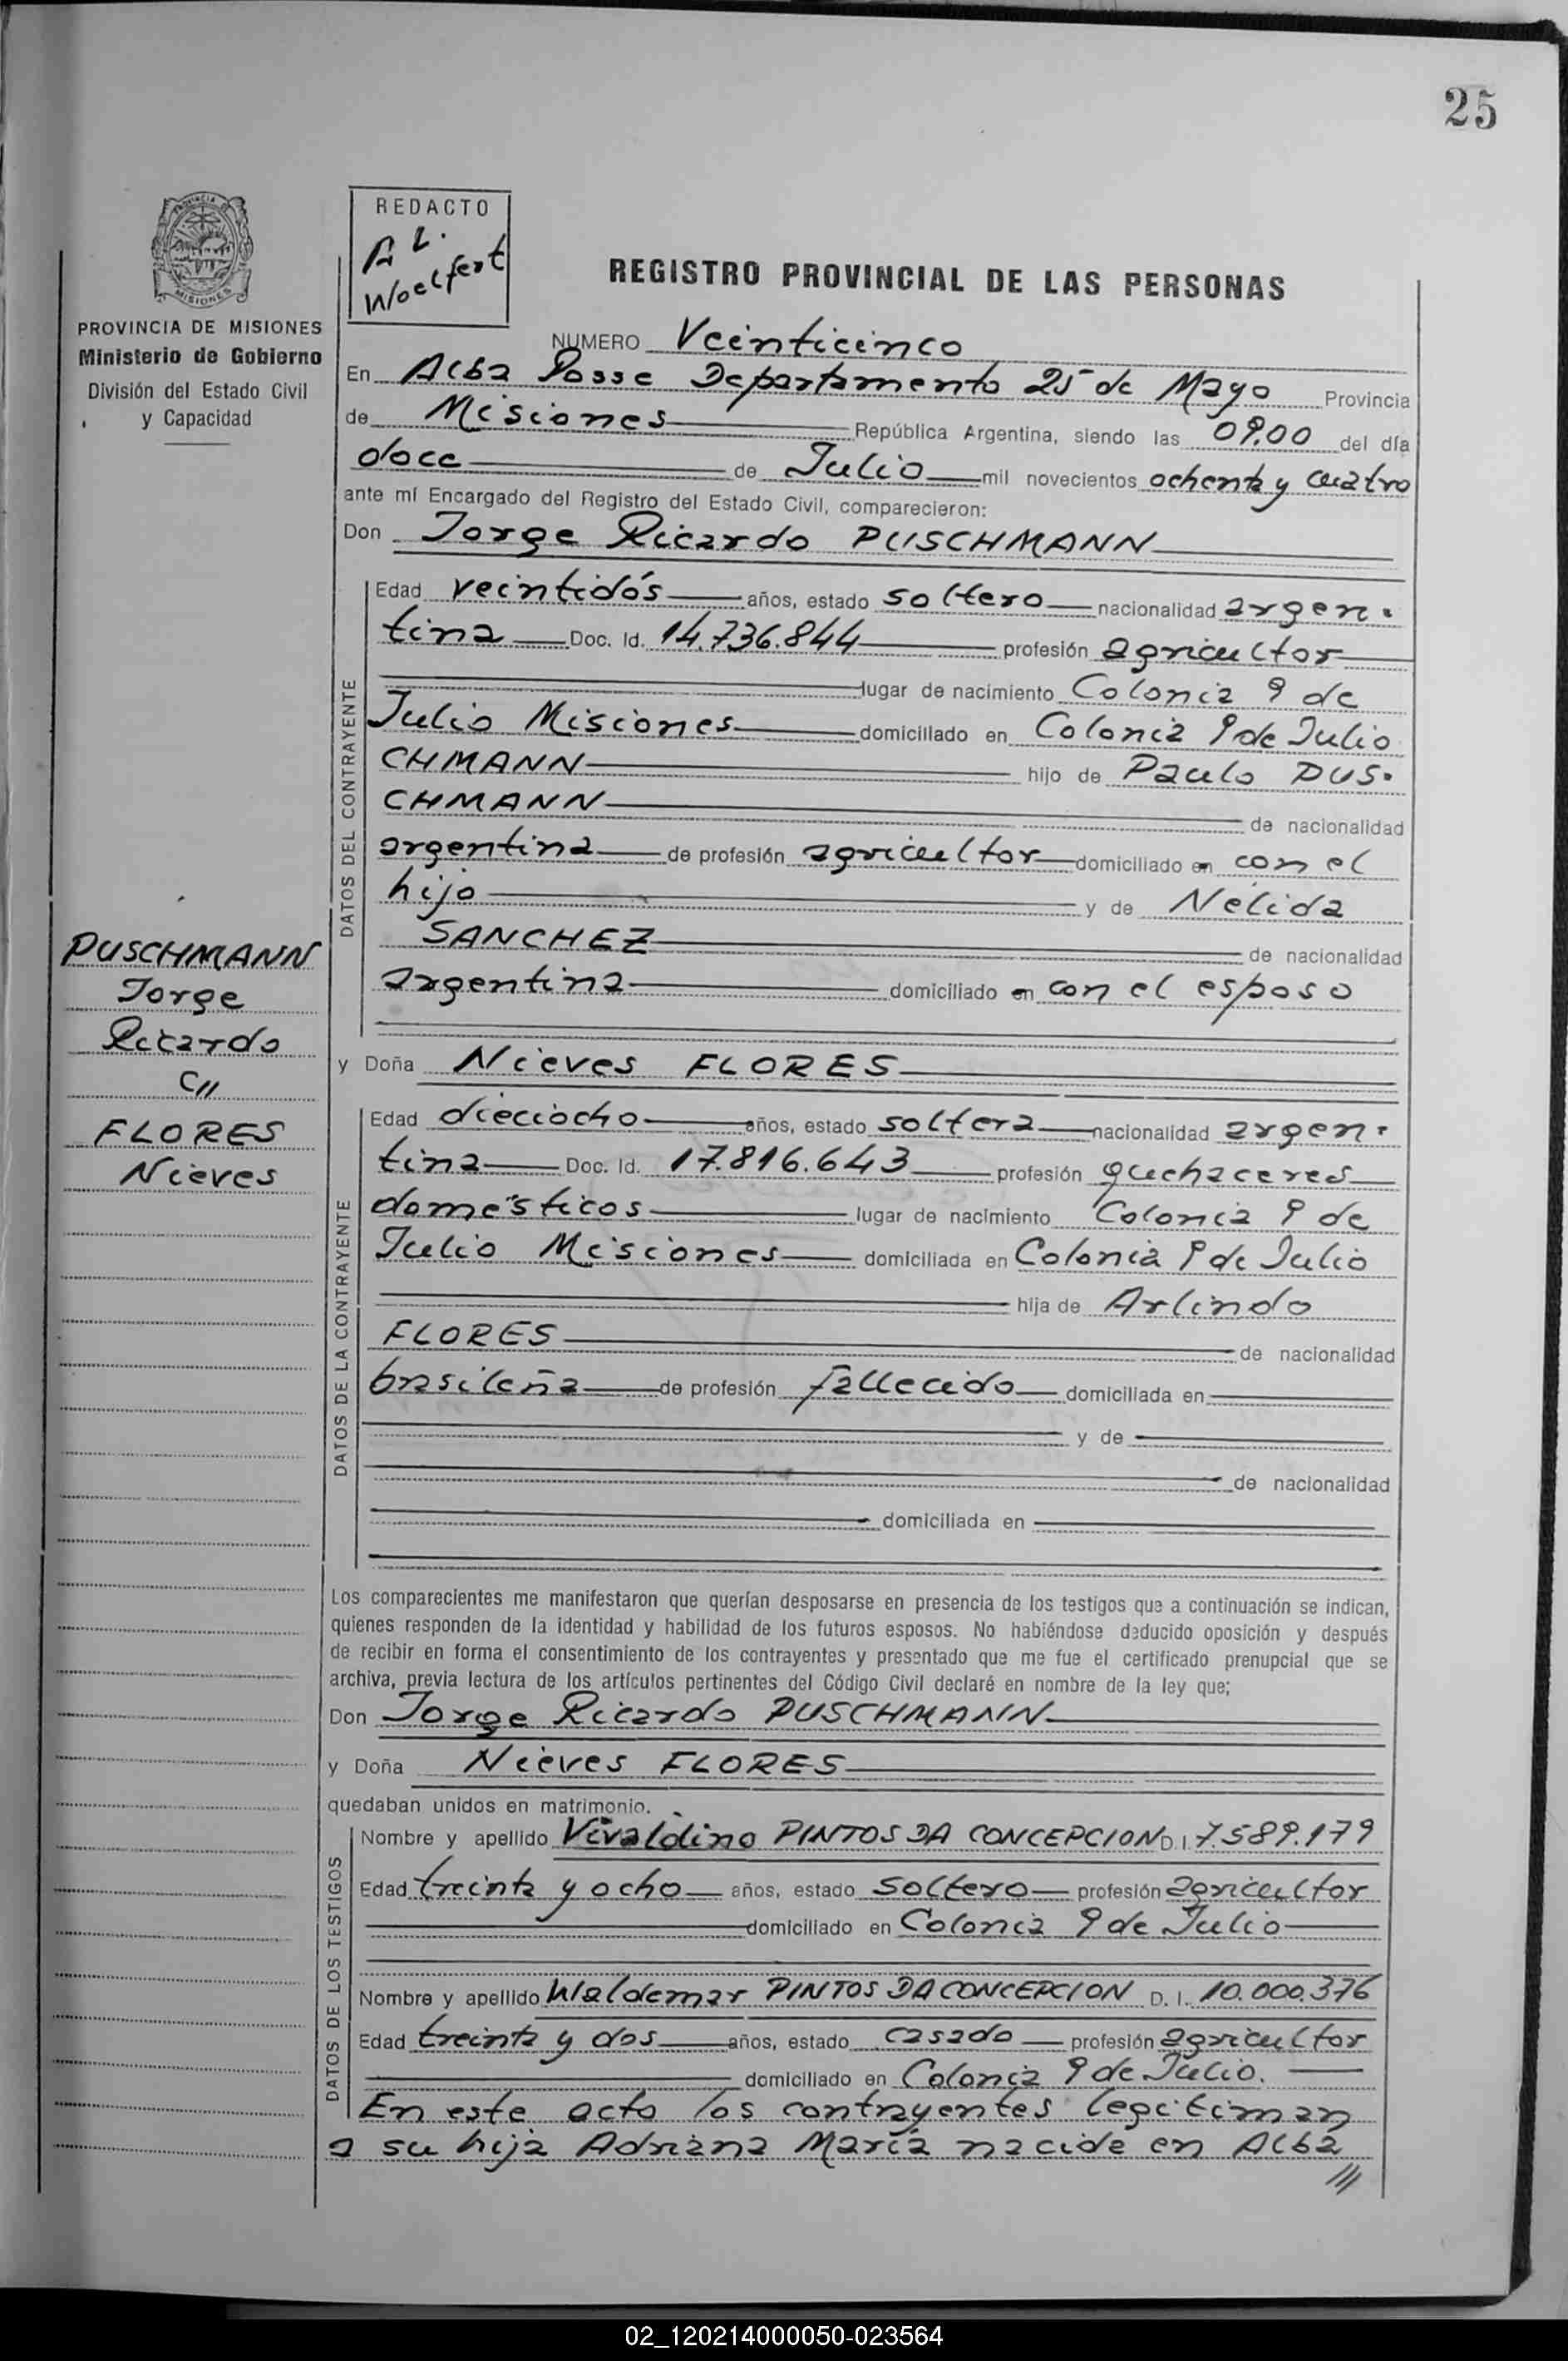 25
PROVINCIA DE
MISIONES
PROVINCIA DE MISIONES
Ministerio de Gobierno
División del Estado Civil
y Capacidad
REDACTO
A L.
Woelfert
REGISTRO PROVINCIAL DE LAS PERSONAS
NUMERO Veinticinco
En Alba Posse Departamento 25 de Mayo Provincia
de Misiones República Argentina, siendo las 09.00 del día
doce de Julio mil novecientos ochenta y cuatro
ante mí Encargado del Registro del Estado Civil, comparecieron:
Don Jorge Ricardo PUSCHMANN
DATOS DEL CONTRAYENTE
Edad veintidós años, estado soltero nacionalidad argen-
tina Doc. Id. 14.736.844 profesión agricultor
lugar de nacimiento Colonia 9 de
Julio Misiones domiciliado en Colonia 9 de Julio
CHMANN hijo de Paulo PUS-
CHMANN de nacionalidad
argentina de profesión agricultor domiciliado en con el
hijo y de Nélida
SANCHEZ de nacionalidad
argentina domiciliado en con el esposo
PUSCHMANN
Jorge
Ricardo
C//
FLORES
Nieves
y Doña Nieves FLORES
DATOS DE LA CONTRAYENTE
Edad dieciocho años, estado soltera nacionalidad argen-
tina Doc. Id. 17.816.643 profesión quehaceres
domésticos lugar de nacimiento Colonia 9 de
Julio Misiones domiciliada en Colonia 9 de Julio
hija de Arlindo
FLORES de nacionalidad
brasileña de profesión fallecido domiciliada en
y de
de nacionalidad
domiciliada en
Los comparecientes me manifestaron que querían desposarse en presencia de los testigos que a continuación se indican,
quienes responden de la identidad y habilidad de los futuros esposos. No habiéndose deducido oposición y después
de recibir en forma el consentimiento de los contrayentes y presentado que me fue el certificado prenupcial que se
archiva, previa lectura de los artículos pertinentes del Código Civil declaré en nombre de la ley que;
Don Jorge Ricardo PUSCHMANN
y Doña Nieves FLORES
quedaban unidos en matrimonio.
DATOS DE LOS TESTIGOS
Nombre y apellido Vivaldino PINTOS DA CONCEPCION D. I. 7.589.179
Edad treinta y ocho años, estado soltero profesión agricultor
domiciliado en Colonia 9 de Julio
Nombre y apellido Waldemar PINTOS DA CONCEPCION D. I. 10.000.376
Edad treinta y dos años, estado casado profesión agricultor
domiciliado en Colonia 9 de Julio.
En este acto los contrayentes legitiman
a su hija Adriana María nacide en Alba
///
02_120214000050-023564